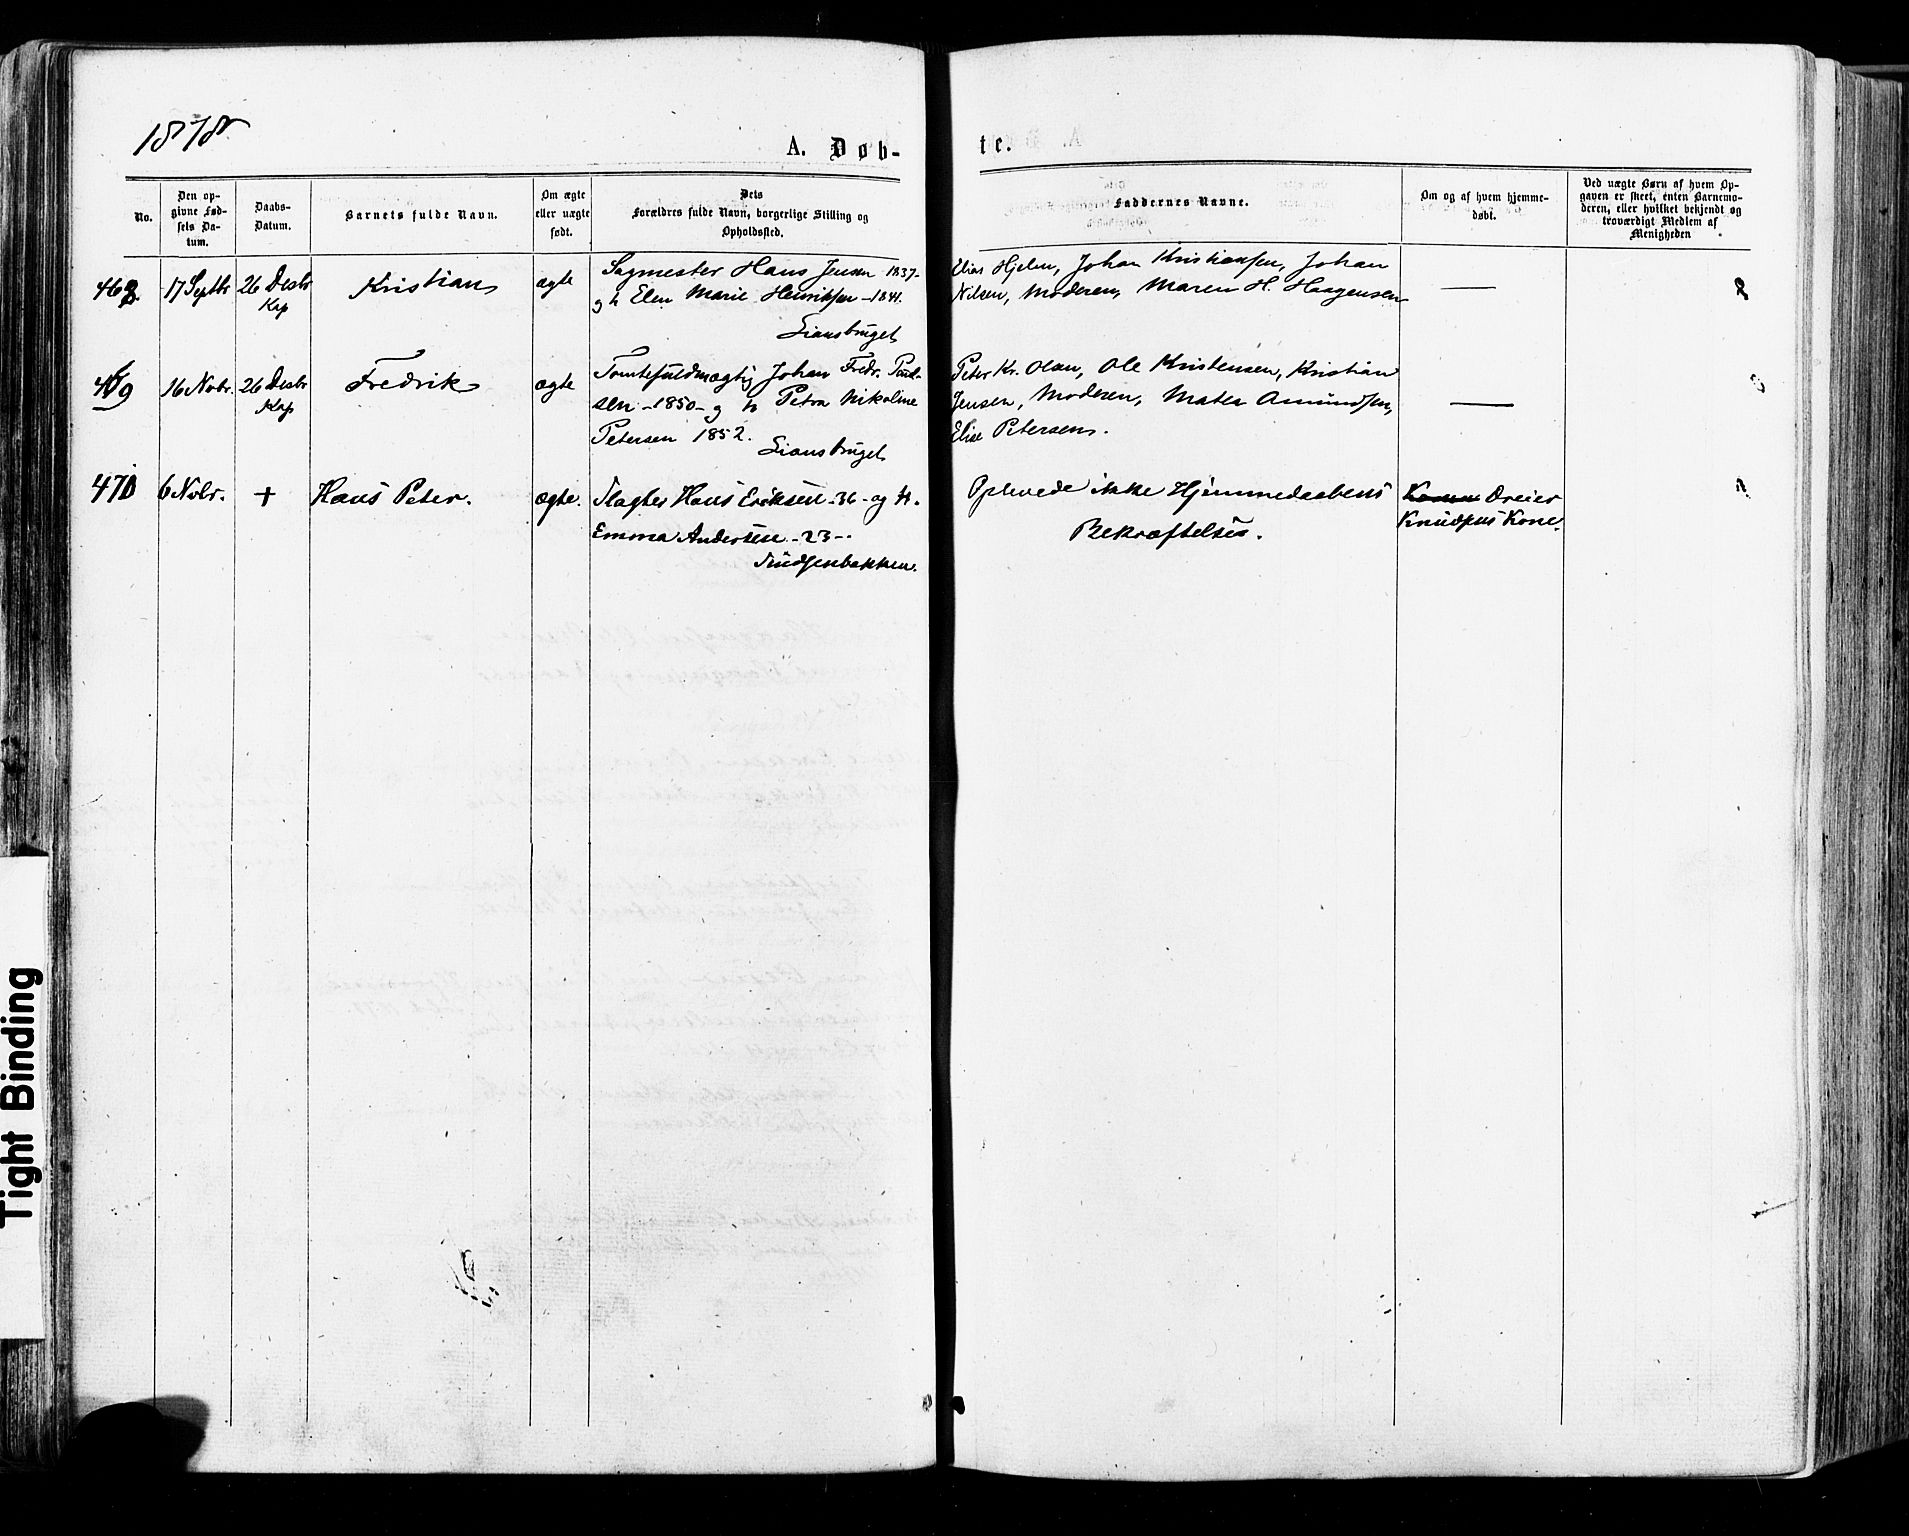 1878
A. Døb-
te.
No.
Den op-
givne Fød-
sels Da-
tum.
Daabs-
Datum.
Barnets fulde Navn.
Om ægte
eller uægte
født.
Dets
Forældres fulde Navn, borgerlige Stilling og
Opholdssted.
Faddernes Navne.
Om og af hvem hjemme-
døbt.
Ved uægte Børn af hvem Op-
gaven er skeet, enten Barnemo-
deren, eller hvilket bekjendt og
troværdigt Medlem af
Menigheden
468. 17 Septbr 26 Desbr Kristian ægte Sagmester Hans Jensen 1837-
Kap
g h Elen Marie Henriksen - 1841.
Liansbruget
Elias Hjelm, Johan Kristiansen, Johan
Nilsen, Moderen, Maren H. Haagensen
469 16 Nobr. 26 Desbr Fredrik ægte Tomtefuldmægtig Johan Fredr. Paul-
Kap
sen - 1850 - g h Petra Nikoline
Petersen 1852.
Liansbruget
Peter Kr. Olsen, Ole Kristensen, Kristian
Jensen, Moderen, Mater Amundsen,
Elise Petersen.
470 6 Nobr. + Hans Peter. ægte. Slagter Hans Eriksen - 36 - og h.
Emma Andersen - 23 -.
Oplevede ikke Hjemmedaabens
Bekræftelse.
Dreier
Knudsens Kone.
Tight Binding